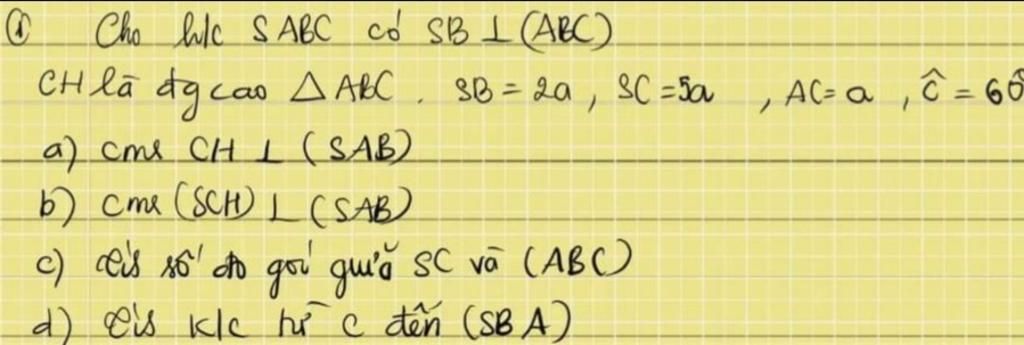 ① Cho h/c SABC có SB ⊥ (ABC)
CH là đg cao △ABC. SB = 2a, SC = 5a, AC = a, Ĉ = 60
a) cmr CH ⊥ (SAB)
b) cmr (SCH) ⊥ (SAB)
c) số đo góc giữa SC và (ABC)
d) k/c từ C đến (SBA)